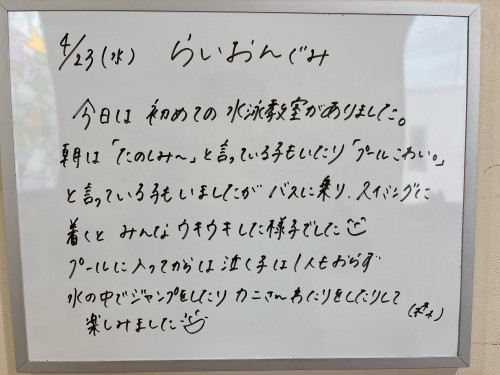 4/23(水) らいおんぐみ
今日は 初めての 水泳教室がありました。
朝は「たのしみ〜」と言っている子もいたり「プールこわい。」
と言っている子もいましたが バスに乗り、スイミングに
着くと みんな ウキウキした様子でした
プールに入ってからは 泣く子は1人もおらず
水の中でジャンプをしたり カニさんわたりをしたりして
楽しみました